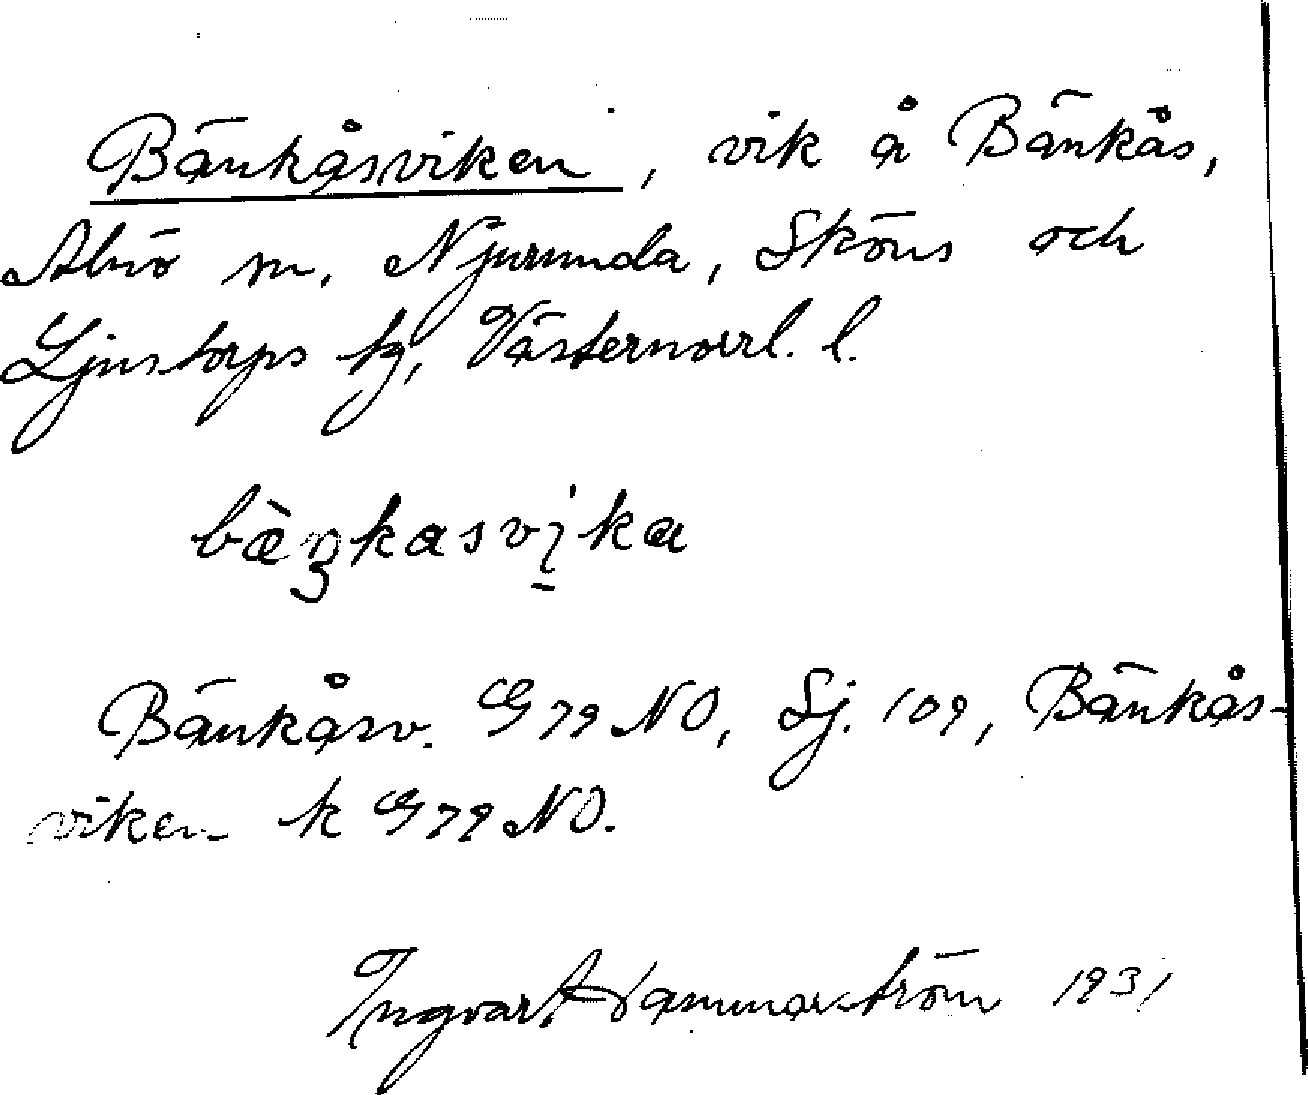 Bänkåsviken, vik å Bänkås,
Alnö sn, Njurunda, Sköns och
Ljustorps tg, Västernorrl. l.
bæ̀ŋkasvi̱ka
Bänkåsv. G79NO, Sj. 109, Bänkås-
viken k G79NO.
Ingvar Hammarström 1931